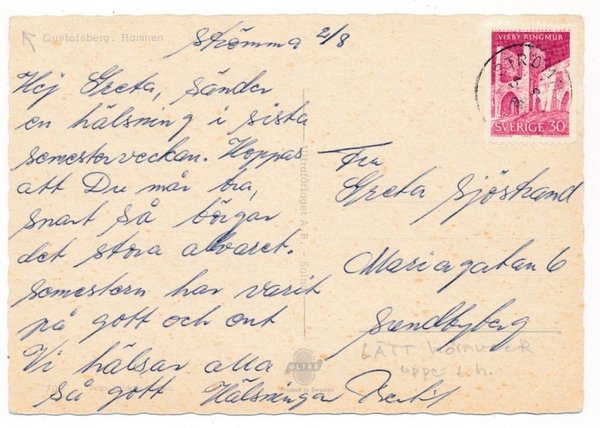 Gustafsberg. Hamnen
Strömma 2/8
Hej Greta, sänder
en hälsning i sista
semesterveckan. Hoppas
att Du mår bra,
snart så börjar
det stora allvaret.
Semestern har varit
på gott och ont
Vi hälsar alla
så gott Hälsningar
VISBY RINGMUR
SVERIGE 30
Fru
Greta Sjöstrand
Mariagatan 6
Sundbyberg
LÄTT
uppe t.h.
Ultraförlaget A.B.
ULTRA
Printed in Sweden